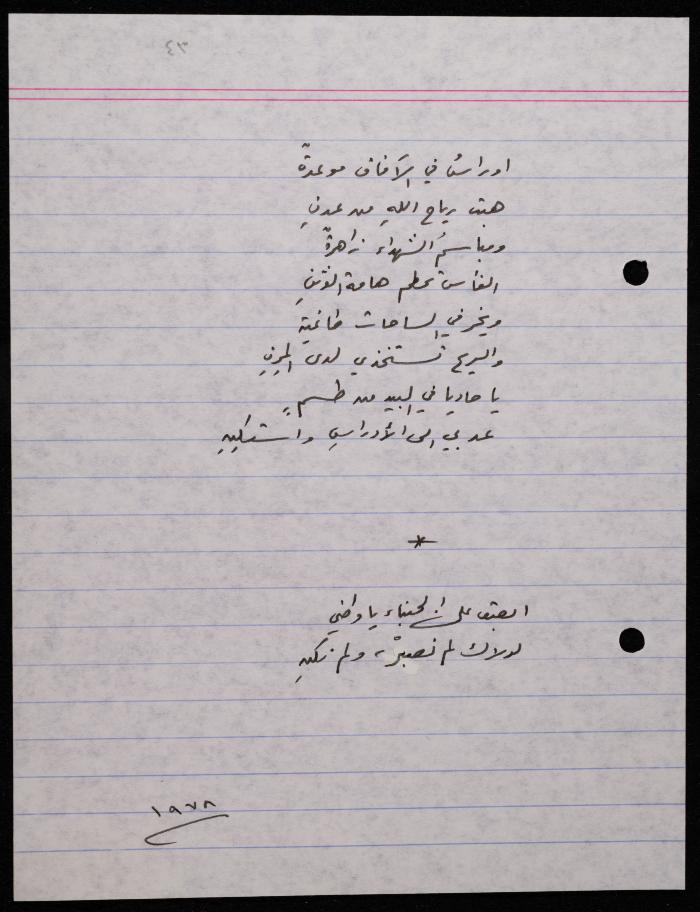 ٤٣
اوراسُ في الآفاق موعدةٌ
هبت رياح اللهِ من عدنِ
ومباسمُ الشهداء زاهرةٌ
الفأس تحطم هامة الوثنِ
ويخر في الساحات طاغية
والريح تستخذي لدى المِحنِ
يا حاديا في البيد من طسمٍ
عد بي الى الأوراسِ واستَكِنِ
*
ابصق على الجبناء يا وطني
لولاك لم نصبرْ، ولم نكنِ
١٩٧٨